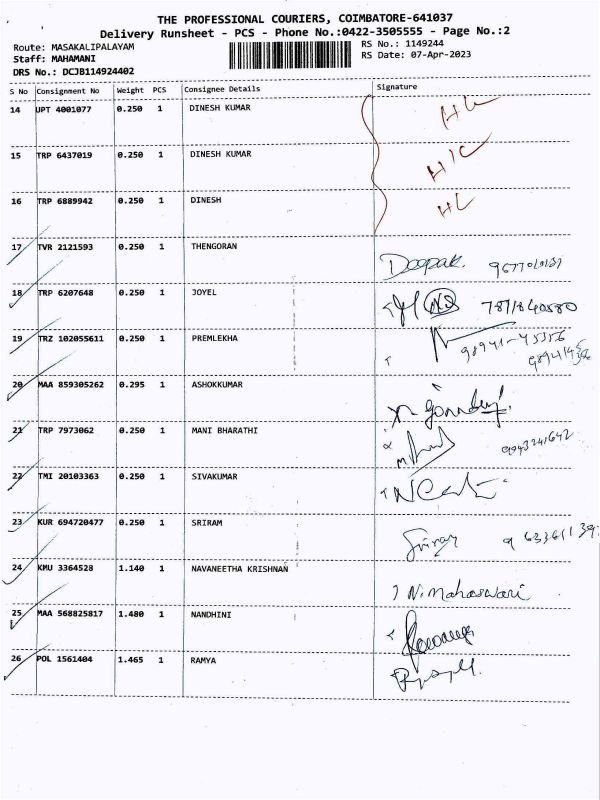 THE PROFESSIONAL COURIERS, COIMBATORE-641037
Delivery Runsheet - PCS - Phone No.:0422-3505555 - Page No.:2
Route: MASAKALIPALAYAM
Staff: MAHAMANI
DRS No.: DCJB114924402
RS No.: 1149244
RS Date: 07-Apr-2023
S No Consignment No Weight PCS Consignee Details Signature
14 UPT 4001077 0.250 1 DINESH KUMAR
15 TRP 6437019 0.250 1 DINESH KUMAR
16 TRP 6889942 0.250 1 DINESH
17 TVR 2121593 0.250 1 THENGORAN Deepak.
18 TRP 6207648 0.250 1 JOYEL
19 TRZ 102055611 0.250 1 PREMLEKHA
20 MAA 859305262 0.295 1 ASHOKKUMAR
21 TRP 7973062 0.250 1 MANI BHARATHI
22 TMI 20103363 0.250 1 SIVAKUMAR
23 KUR 694720477 0.250 1 SRIRAM Sriram
24 KMU 3364528 1.140 1 NAVANEETHA KRISHNAN N. Mahaswari
25 MAA 568825817 1.480 1 NANDHINI
26 POL 1561404 1.465 1 RAMYA